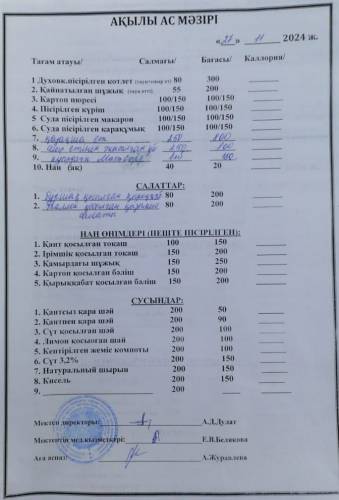 АҚЫЛЫ АС МӘЗІРІ
«27» 11 2024 ж.
Тағам атауы/ Салмағы/ Бағасы/ Каллория/
1 Духовк.пісірілген котлет 80 300
2. Қайнатылған шұжық 55 200
3. Картоп пюресі 100/150 100/150
4. Пісірілген күріш 100/150 100/150
5 Суда пісірілген макарон 100/150 100/150
6. Суда пісірілген қарақұмық 100/150 100/150
7.
8.
9.
10. Нан (ақ) 40 20
САЛАТТАР:
1. 80 200
2. 80 200
НАН ӨНІМДЕРІ (ПЕШТЕ ПІСІРІЛГЕН):
1. Қант қосылған тоқаш 100 150
2. Ірімшік қосылған тоқаш 150 200
3. Қамырдағы шұжық 150 250
4. Картоп қосылған бәліш 150 200
5. Қырыққабат қосылған бәліш 150 200
СУСЫНДАР:
1. Қантсыз қара шәй 200 50
2. Қантпен қара шәй 200 90
3. Сүт қосылған шәй 200 100
4. Лимон қосылған шай 200 100
5. Кептірілген жеміс компоты 200 100
6. Сүт 3,2% 200 150
7. Натуральный шырын 200 150
8. Кисель 200 150
9. 200
Мектеп директоры: А.Д.Дулат
Мектептің мед.қызметкері: Е.В.Белякова
Аға аспаз: А.Журавлева